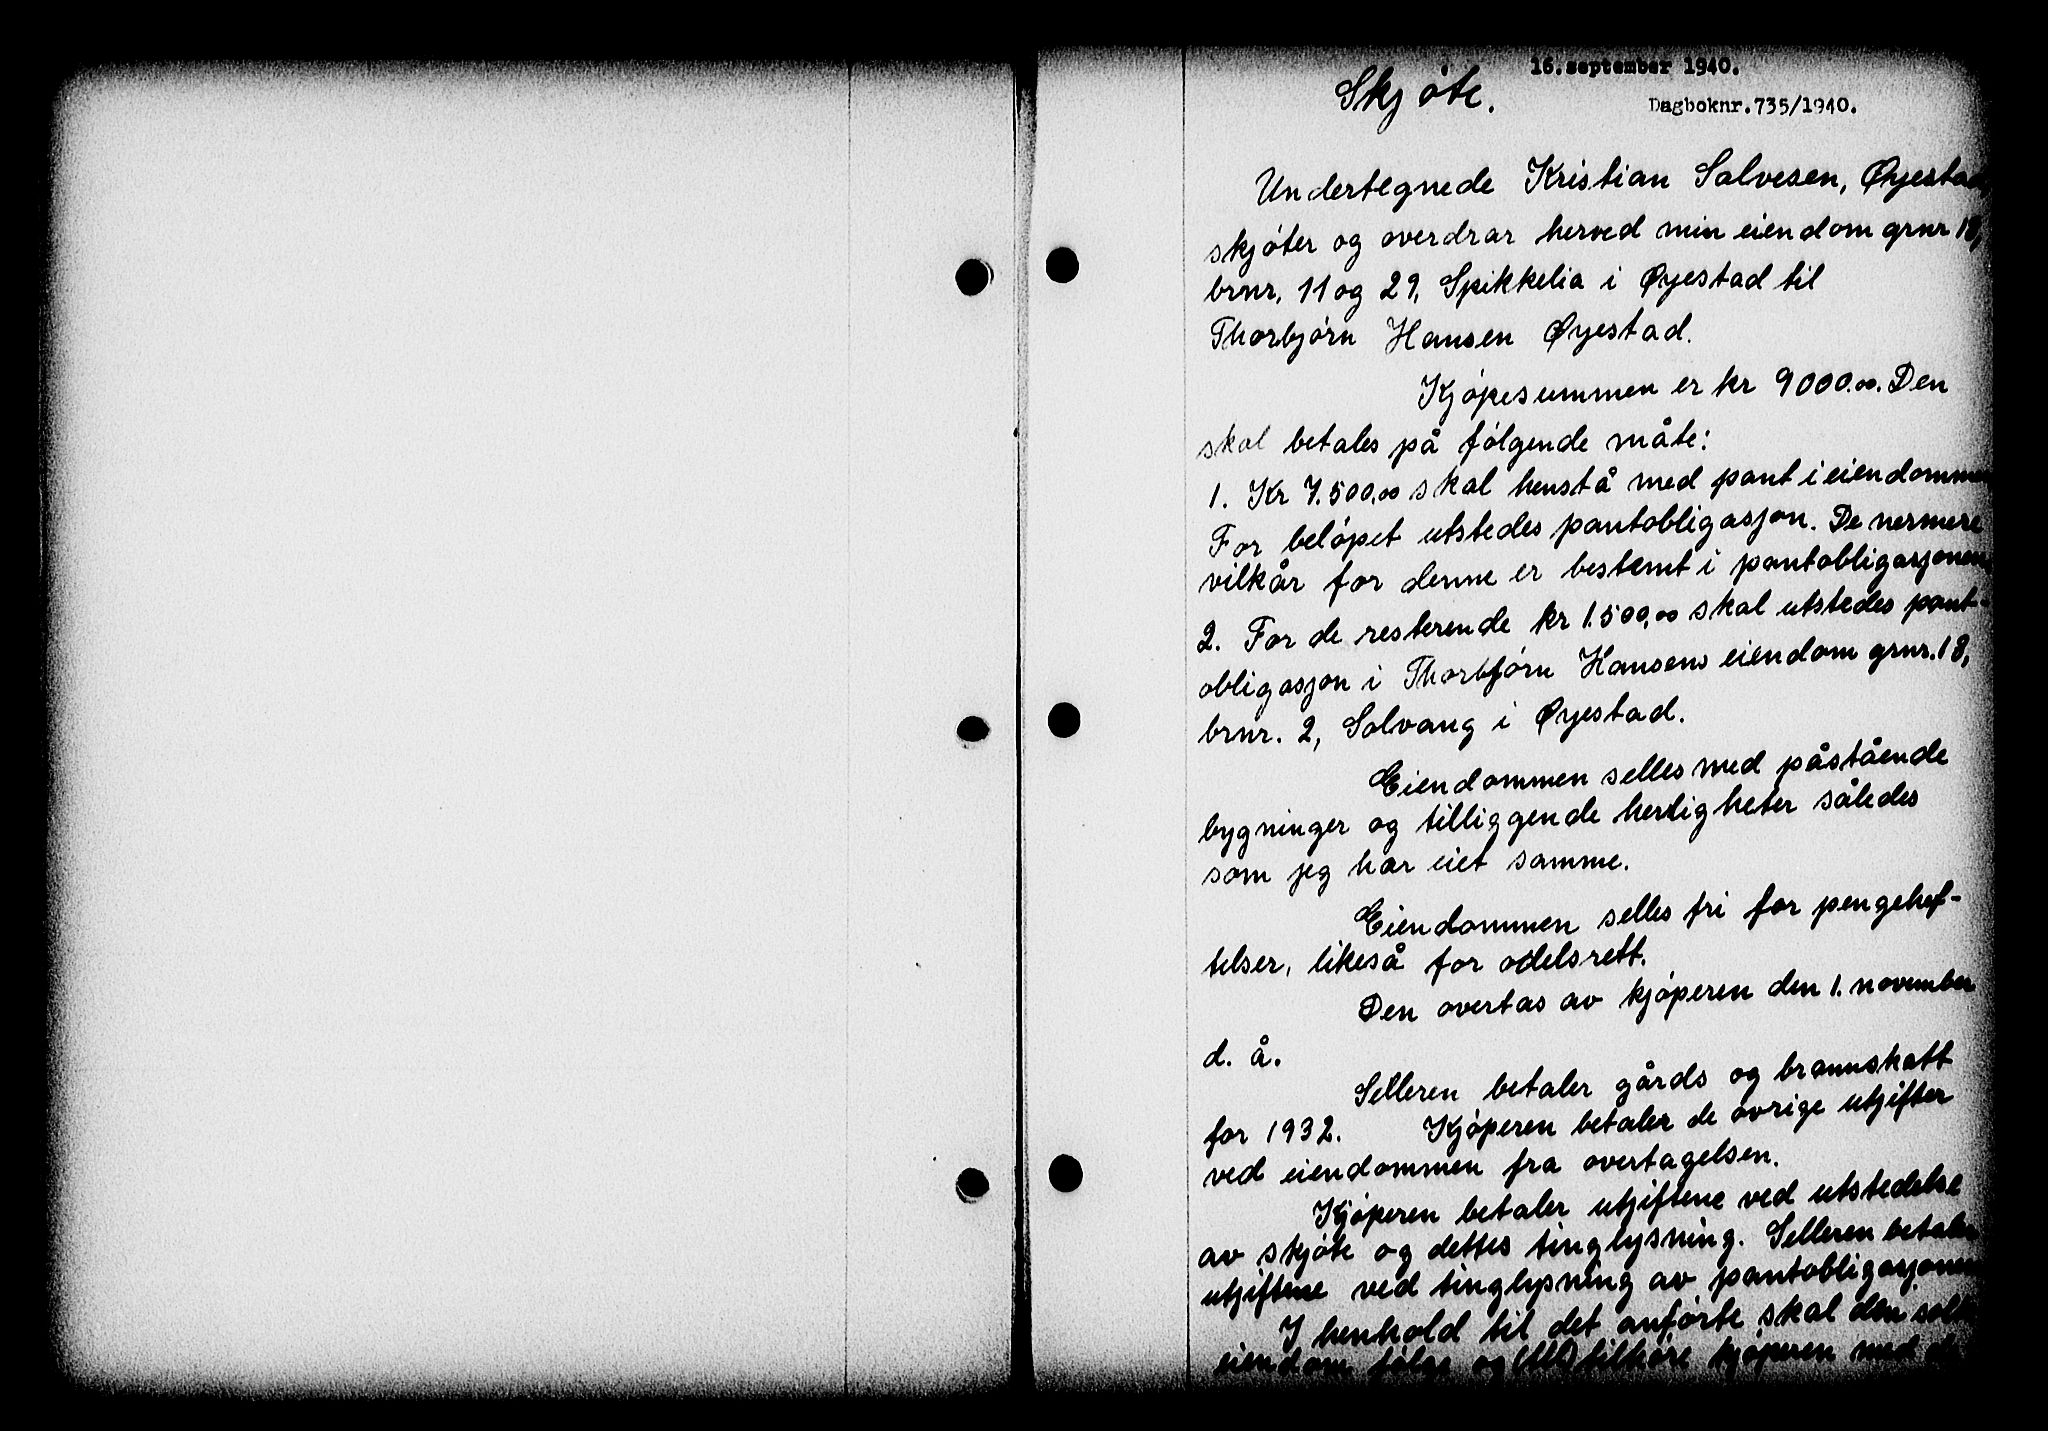 16. september 1940.
Skjøte.
Dagboknr. 735/1940.
Undertegnede Kristian Salvesen, Øyestad
skjøter og overdrar herved min eiendom grnr 18,
brnr. 11 og 29, Spikkelia i Øyestad til
Thorbjørn Hansen Øyestad.
Kjøpesummen er kr 9000.00. Den
skal betales på følgende måte:
1. Kr 7.500,00 skal henstå med pant i eiendommen
For beløpet utstedes pantobligasjon. De nermere
vilkår for denne er bestemt i pantobligasjonen.
2. For de resterende kr 1.500,00 skal utstedes pant-
obligasjon i Thorbjørn Hansens eiendom grnr. 18,
brnr. 2, Solvang i Øyestad.
Eiendommen selles med påstående
bygninger og tilliggende herligheter således
som jeg har eiet samme.
Eiendommen selles fri for pengehef-
telser, likeså for odelsrett.
Den overtas av kjøperen den 1. november
d. å.
Selleren betaler gårds og brannskatt
for 1932. Kjøperen betaler de øvrige utgifter
ved eiendommen fra overtagelsen.
Kjøperen betaler utgiftene ved utstedelse
av skjøte og dettes tinglysning. Selleren betaler
utgiftene ved tinglysning av pantobligasjonen
I henhold til det anførte skal den solte
eiendom følge og tilhøre kjøperen med